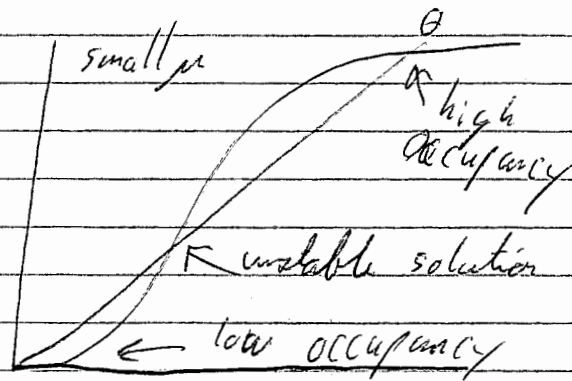 θ
small μ
high
Occupancy
unstable solution
low occupancy